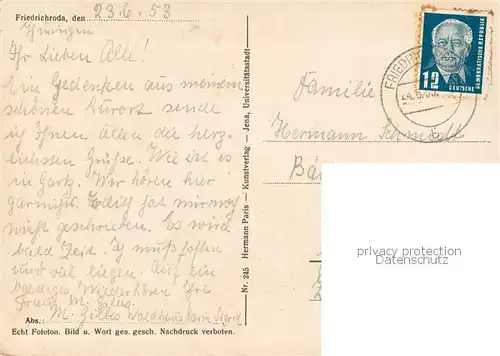 Friedrichroda, den 23.6.53
Thüringen
Ihr Lieben Alle!
Ein Gedenken aus meinem
schönen Kurort sende
ich Ihnen Allen die herz-
lichsten Grüße. Wie ist es
in Gartz. Wir hören hier
garnichts. Edith hat mir noch
nicht geschrieben. Es wird
bald Zeit. Ich muß
und viel liegen. Auf ein
baldiges Wiederhören Ihre
M.
Abs.: M. Waldhaus
Echt Fototon. Bild u. Wort ges. gesch. Nachdruck verboten.
Nr. 245 Hermann Paris — Kunstverlag — Jena, Universitätsstadt
Familie
Hermann Schmidt
FRIED
24.6.53
12
DEUTSCHE
DEMOKRATISCHE REPUBLIK
privacy protection
by AnsichtskartenVersand.com